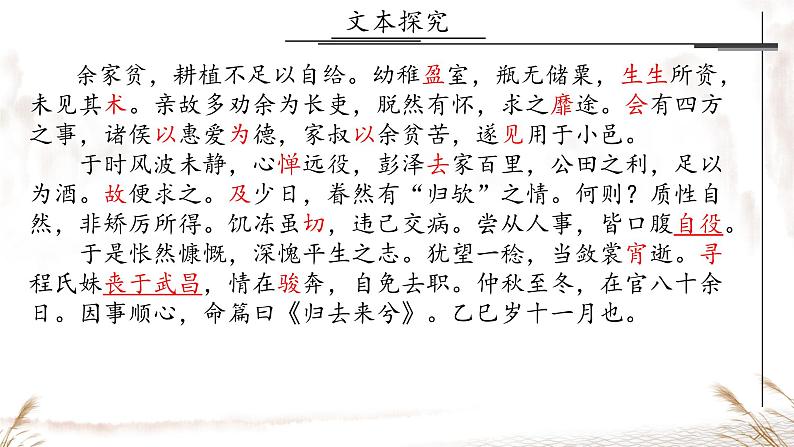 文本探究
余家贫，耕植不足以自给。幼稚盈室，瓶无储粟，生生所资，
未见其术。亲故多劝余为长吏，脱然有怀，求之靡途。会有四方
之事，诸侯以惠爱为德，家叔以余贫苦，遂见用于小邑。
于时风波未静，心惮远役，彭泽去家百里，公田之利，足以
为酒。故便求之。及少日，眷然有“归欤”之情。何则？质性自
然，非矫厉所得。饥冻虽切，违己交病。尝从人事，皆口腹自役。
于是怅然慷慨，深愧平生之志。犹望一稔，当敛裳宵逝。寻
程氏妹丧于武昌，情在骏奔，自免去职。仲秋至冬，在官八十余
日。因事顺心，命篇曰《归去来兮》。乙巳岁十一月也。